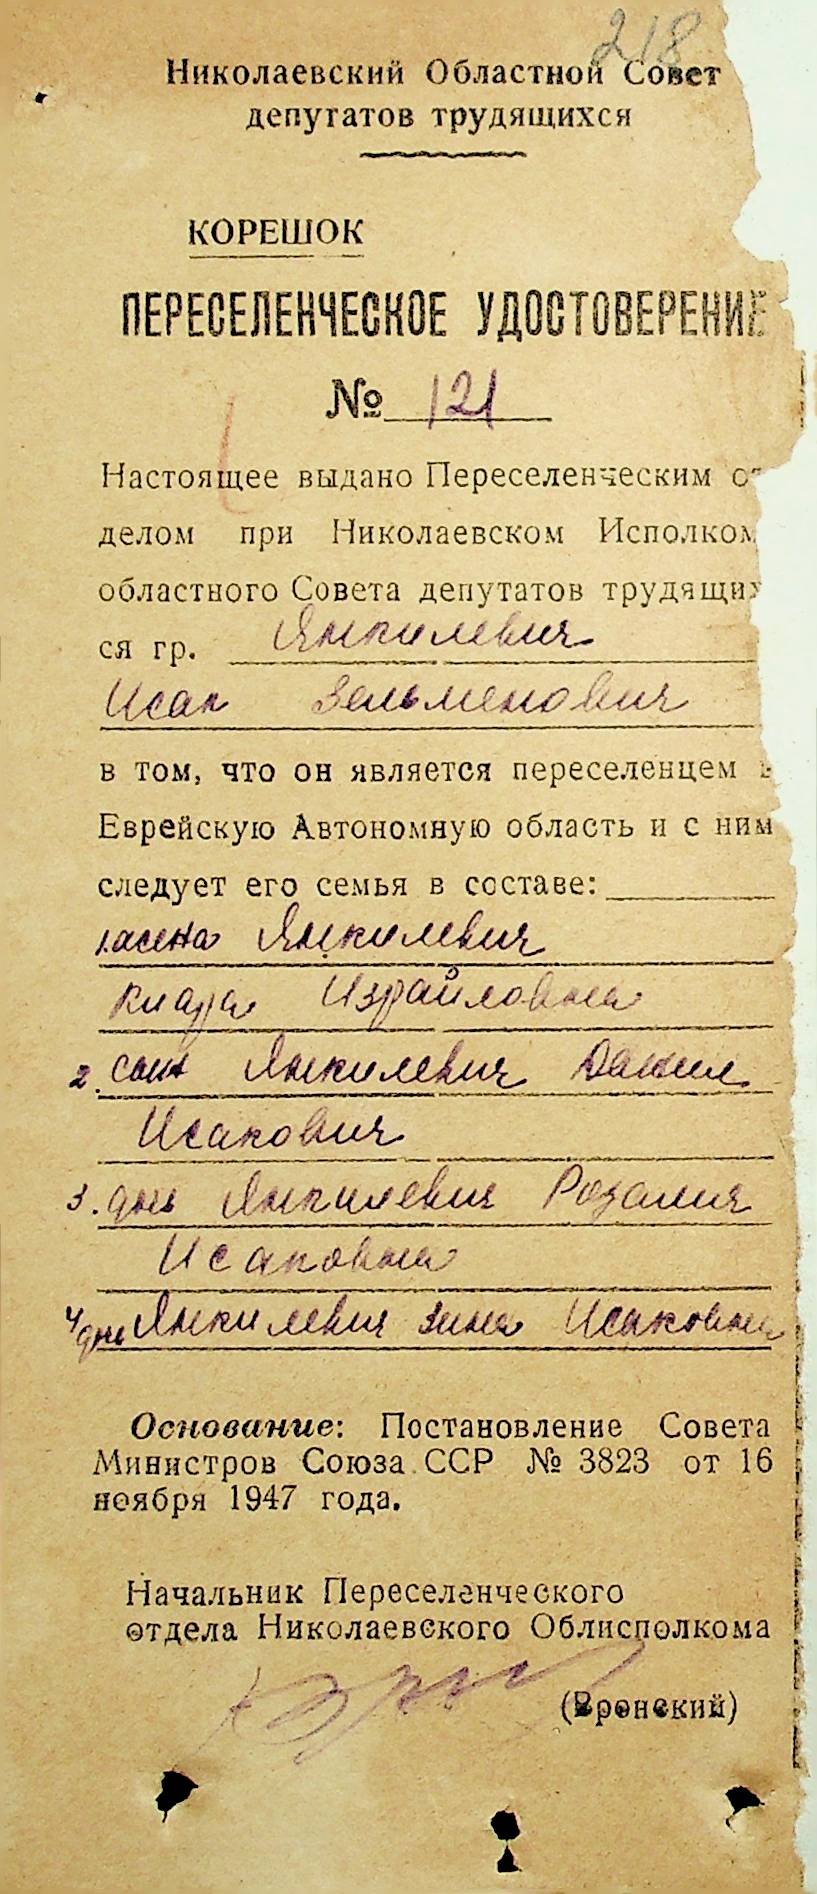 218
Николаевский Областной Совет
депутатов трудящихся
КОРЕШОК
ПЕРЕСЕЛЕНЧЕСКОЕ УДОСТОВЕРЕНИЕ
№ 121
Настоящее выдано Переселенческим от
делом при Николаевском Исполком
областного Совета депутатов трудящих
ся гр. Янкилевич
Исак Зельменович
в том, что он является переселенцем в
Еврейскую Автономную область и с ним
следует его семья в составе:
1. жена Янкилевич
Клара Израйловна
2. сын Янкилевич Данил
Исакович
3. дочь Янкилевич Розалия
Исаковна
4 дочь Янкилевич Зина Исаковна
Основание: Постановление Совета
Министров Союза ССР № 3823 от 16
ноября 1947 года.
Начальник Переселенческого
отдела Николаевского Облисполкома
(Вронский)